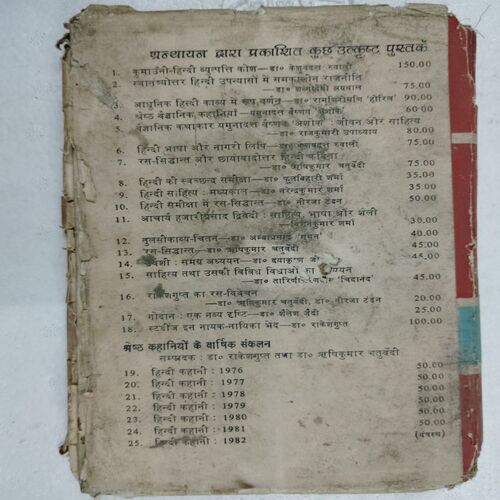 ग्रन्थायन द्वारा प्रकाशित कुछ उत्कृष्ट पुस्तकें
1. कुमाउँनी-हिन्दी व्युत्पत्ति कोश—डा० केशवदत्त रुवाली 150.00
2. स्वातन्त्र्योत्तर हिन्दी उपन्यासों में समकालीन राजनीति
—डा० अग्रवाल 75.00
3. आधुनिक हिन्दी काव्य में रूप वर्णन—डा० रामसिरोमणि 'होरिल' 90.00
4. श्रेष्ठ वैज्ञानिक कहानियाँ—यमुनादत्त वैष्णव 'अशोक' 60.00
5. वैज्ञानिक कथाकार यमुनादत्त वैष्णव 'अशोक' : जीवन और साहित्य
—डा० राजकुमारी उपाध्याय 80.00
6. हिन्दी भाषा और नागरी लिपि—डा० केशवदत्त रुवाली 75.00
7. रस-सिद्धान्त और छायावादोत्तर हिन्दी कविता
—डा० ऋषिकुमार चतुर्वेदी 75.00
8. हिन्दी की स्वच्छन्द समीक्षा—डा० फूलबिहारी शर्मा 35.00
9. हिन्दी साहित्य : मध्यकाल—डा० नरेन्द्रकुमार शर्मा 35.00
10. हिन्दी समीक्षा में रस-सिद्धान्त—डा० नीरजा टंडन 50.00
11. आचार्य हजारीप्रसाद द्विवेदी : साहित्य, भाषा और शैली
शर्मा 30.00
12. तुलसीकाव्य-चिंतन—डा० अम्बाप्रसाद 'सुमन' 40.00
13. रस-सिद्धान्त—डा० ऋषिकुमार चतुर्वेदी 45.00
14. : समग्र अध्ययन—डा० दयाकृष्ण 45.00
15. साहित्य तथा उसकी विविध विधाओं का
—डा० 'चिदानंद' 45.00
16. राकेशगुप्त का रस-विवेचन
—डा० ऋषिकुमार चतुर्वेदी, डा० नीरजा टंडन 20.00
17. गोदान : एक नव्य दृष्टि—डा० शैलेश जैदी 25.00
18. स्टडीज़ इन नायक-नायिका भेद—डा० राकेशगुप्त 100.00
श्रेष्ठ कहानियों के वार्षिक संकलन
सम्पादक : डा० राकेशगुप्त तथा डा० ऋषिकुमार चतुर्वेदी
19. हिन्दी कहानी : 1976 50.00
20. हिन्दी कहानी : 1977 50.00
21. हिन्दी कहानी : 1978 50.00
22. हिन्दी कहानी : 1979 50.00
23. हिन्दी कहानी : 1980 50.00
24. हिन्दी कहानी : 1981 50.00
25. हिन्दी कहानी : 1982 (यंत्रस्थ)